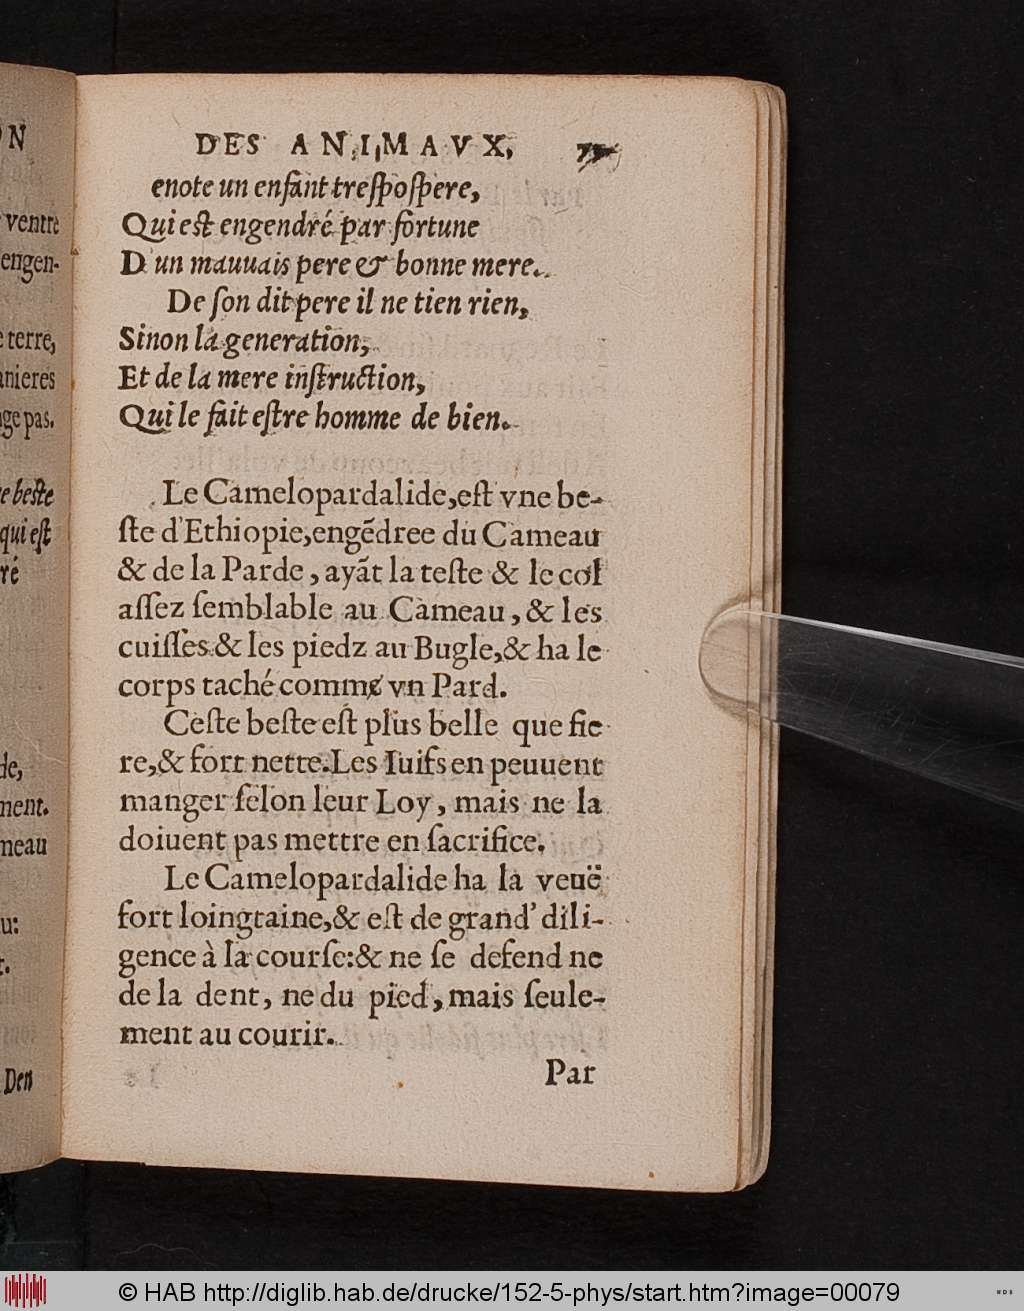 ON
ventre
engen-
terre,
anieres
ge pas.
beste
qui est
ré
de,
ment.
meau
u:
Den
DES ANIMAVX,
enote un enfant trespospere,
Qui est engendré par fortune
D'un mauuais pere & bonne mere.
De son dit pere il ne tien rien,
Sinon la generation,
Et de la mere instruction,
Qui le fait estre homme de bien.
Le Camelopardalide, est vne be-
ste d'Ethiopie, engēdree du Cameau
& de la Parde, ayāt la teste & le col
assez semblable au Cameau, & les
cuisses & les piedz au Bugle, & ha le
corps taché comme vn Pard.
Ceste beste est plus belle que fie
re, & fort nette. Les Iuifs en peuuent
manger selon leur Loy, mais ne la
doiuent pas mettre en sacrifice.
Le Camelopardalide ha la veuë
fort loingtaine, & est de grand' dili-
gence à la course: & ne se defend ne
de la dent, ne du pied, mais seule-
ment au courir.
Par
© HAB http://diglib.hab.de/drucke/152-5-phys/start.htm?image=00079